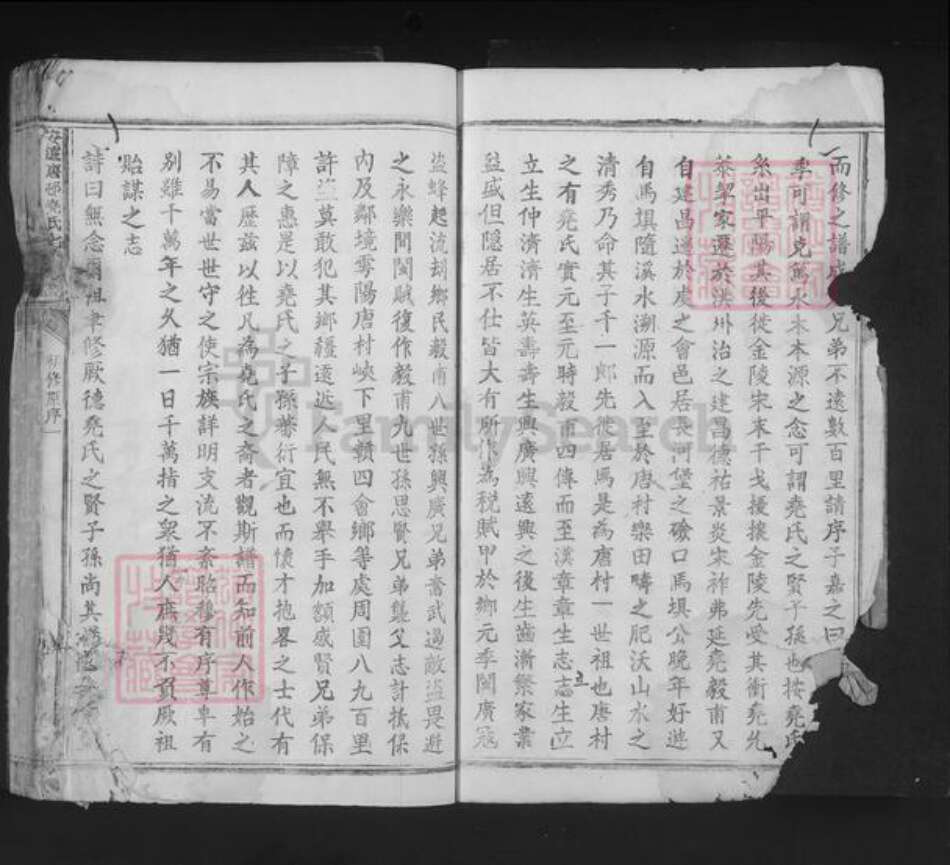 而修之譜成兄弟不遠數百里請序予嘉之曰
季可謂克篤水木本源之念可謂堯氏之賢子孫也按堯氏
系出平陽其後從金陵宋末干戈擾攘金陵先受其衝堯允
恭挈家遷於洪州治之建昌德祐景炎宋祚弗延堯毅甫又
自建昌遷於虔之會邑居長河堡之磜口馬塤公晚年好遊
自馬塤隨溪水溯源而入至於唐村樂田疇之肥沃山水之
清秀乃命其子千一郎先徙居焉是為唐村一世祖也唐村
之有堯氏實元至元時毅甫四傳而至漢章章生志志生立
立生仲濟濟生英壽壽生興廣興遠興之後生齒漸繁家業
益盛但隱居不仕皆大有所作為稅賦甲於鄉元季閩廣寇
盜蜂起流劫鄉民毅甫八世孫興廣兄弟奮武過敵盜畏避
之永樂間閩賊復作毅甫九世孫思賢兄弟襲父志計抵保
內及鄰境雩陽唐村峽下里鎮四會鄉等處周圍八九百里
許盜莫敢犯其鄉疆遠近人民無不舉手加額感賢兄弟保
障之惠是以堯氏之子孫蕃衍宜也而懷才抱畧之士代有
其人歷茲以往凡為堯氏之裔者觀斯譜而知前人作始之
不易當世世守之使宗族詳明支流不紊昭穆有序尊卑有
別雖千萬年之久猶一日千萬指之衆猶一人庶幾不負厥祖
貽謀之志
詩曰無念爾祖聿修厥德堯氏之賢子孫尚其
堯氏
修序
FamilySearch